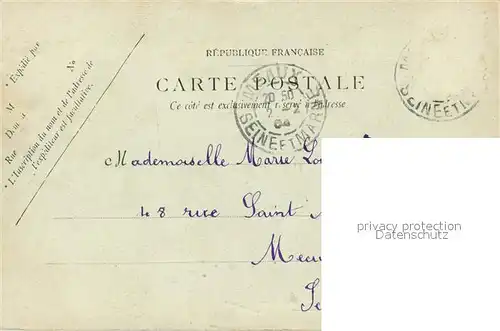 RÉPUBLIQUE FRANÇAISE
CARTE POSTALE
Ce côté est exclusivement réservé à l'adresse
* Expédié par
M
Dem
Rue
No
* L'Inscription du nom et de l'adresse de
l'expéditeur est facultative.
20 50
SEINE ET MARNE
SEINE ET M
Mademoiselle Marie
48 rue Saint
privacy protection
Datenschutz